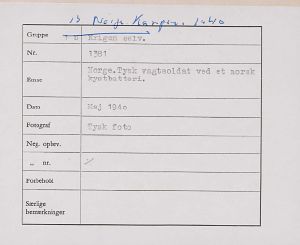 13 Norge-Kampen. 1940
Gruppe 1 b Krigen selv.
Nr. 1381
Emne Norge.Tysk vagtsoldat ved et norsk
kystbatteri.
Dato Maj 1940
Fotograf Tysk foto
Neg. oplev.
„ nr.
Forbeholt
Særlige
bemærkninger